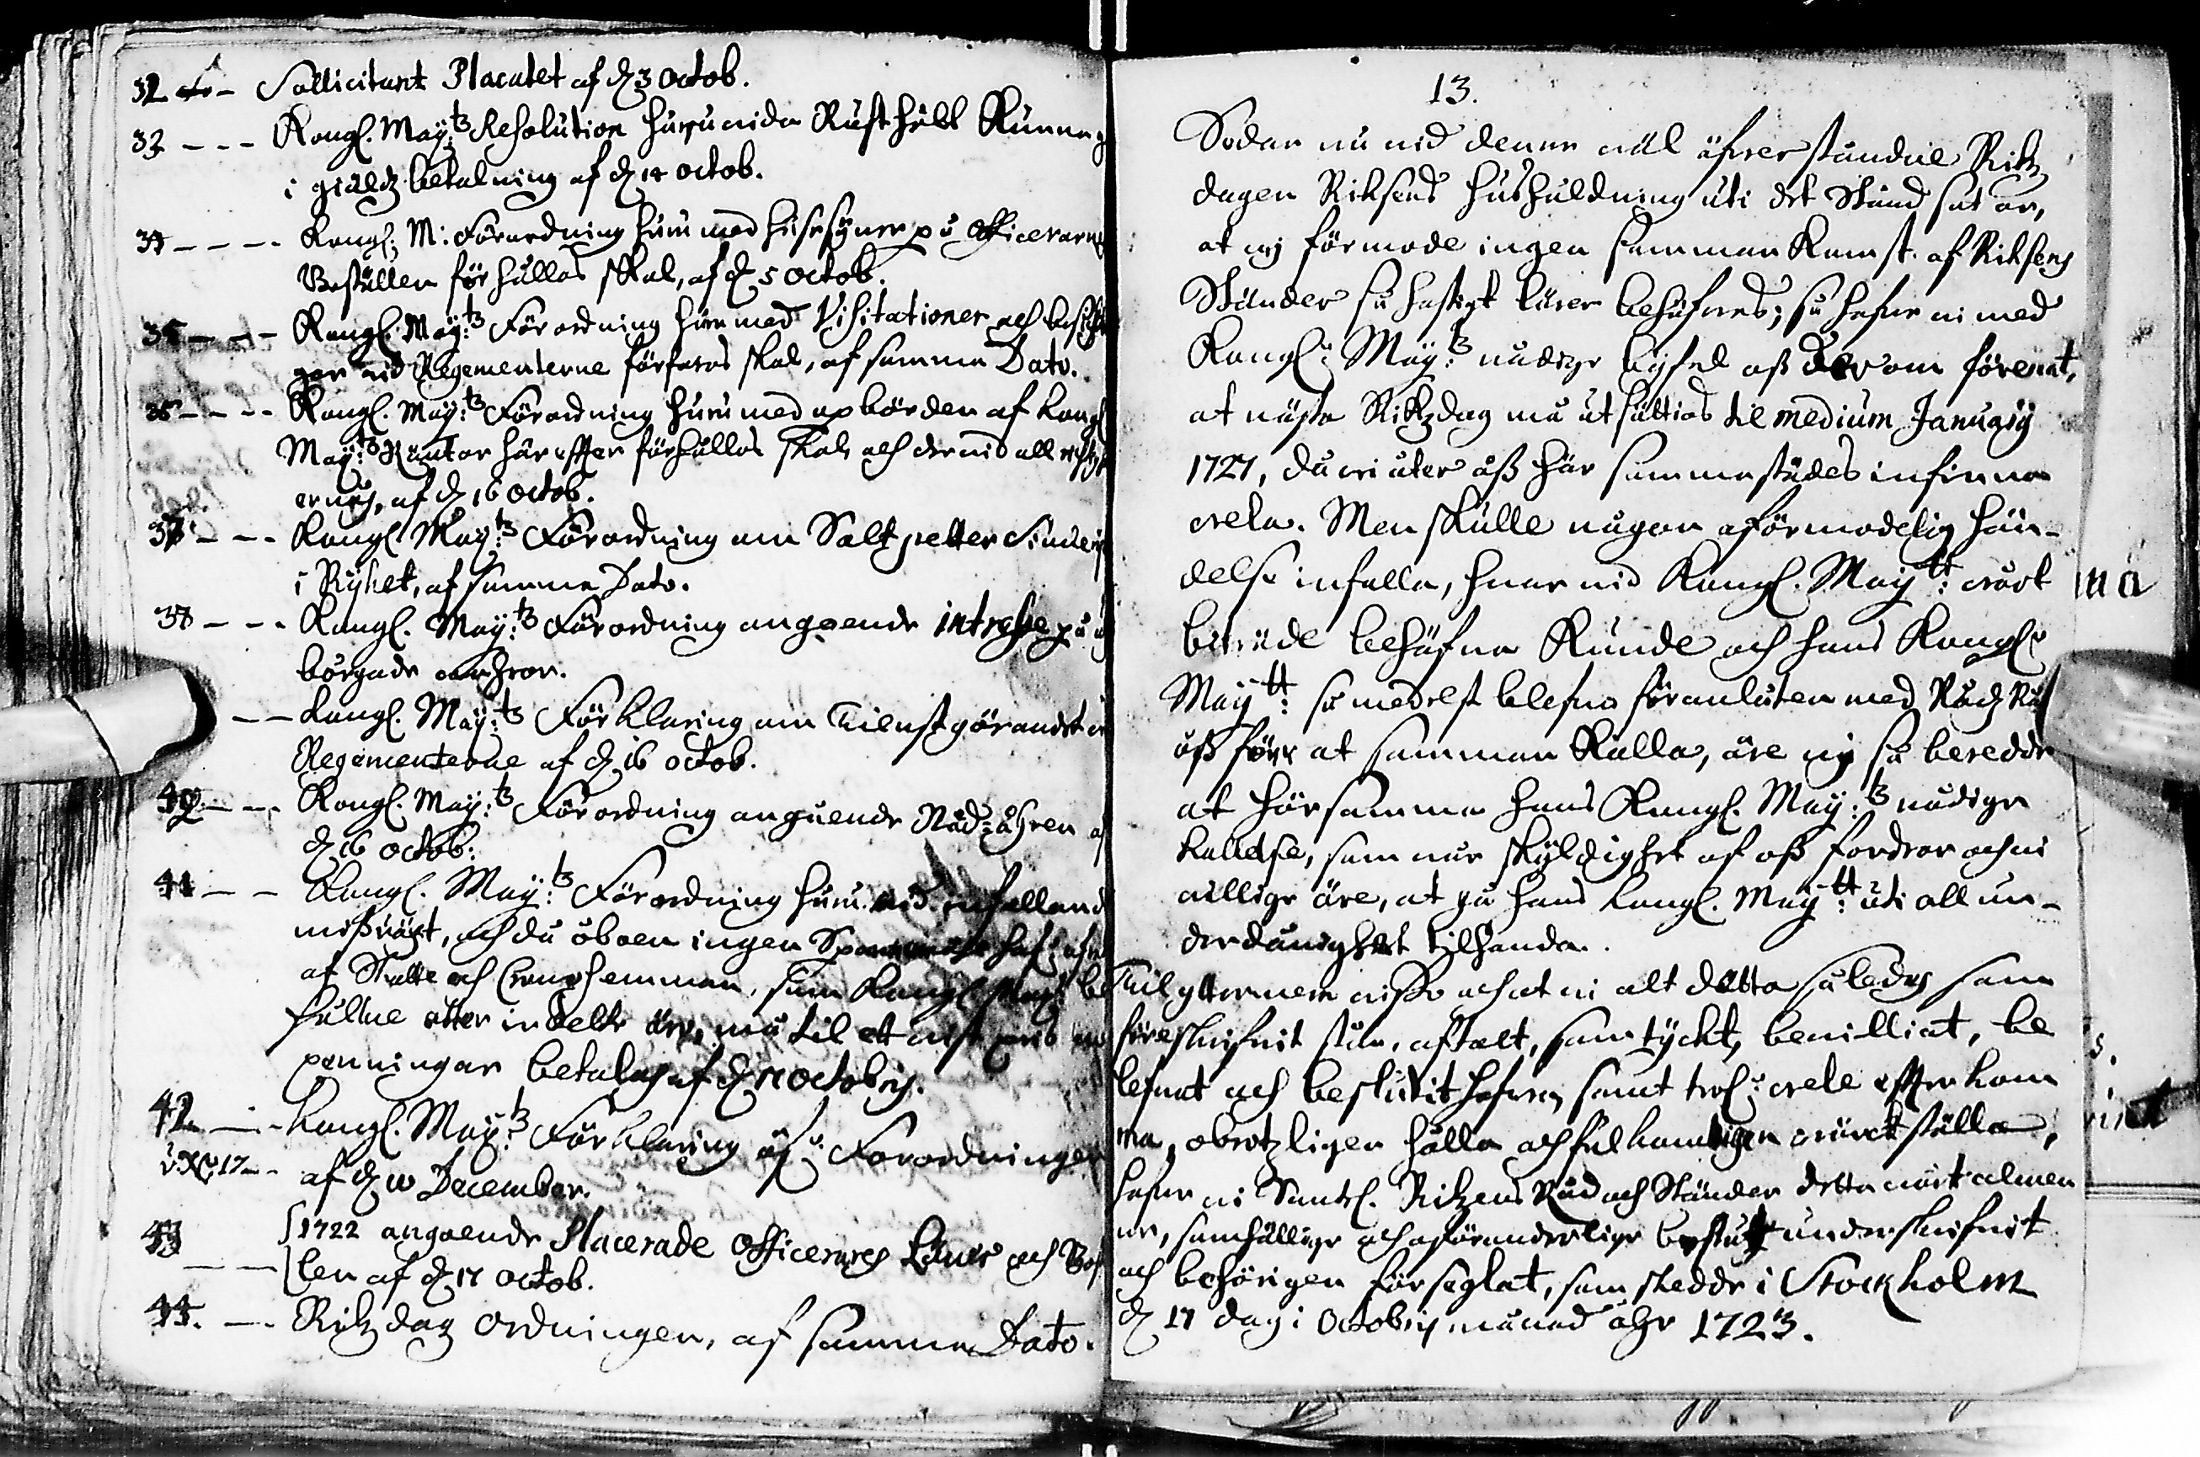 32 - - Sollicitant Placatet af d. 3 Octob.
33 - - - Kongl. May:tz Resolution huruvida Rusthåll Kunna
i gäldz betalning af d. 14 octob.
34 - - - Kongl. M: Förordning huru med huusesyner på Officerarnes
Boställen förhållas skal, af d. 5 octob.
35 - - - Kongl. May:tz Förordning huru med Visitationer och
gar vid Regementerne förfaras skal, af samma Dato.
36 - - - Kongl. May:tz Förordning huru med opbörden af Kongl
May:tz Räntor här effter förhållas skal, och der vid all
af d. 16 octob.
37 - - - Kongl May:tz Förordning om Saltpetter
i Ryket, af samma Dato.
38 - - - Kongl. May:tz Förordning angaende intresse på
borgade
- - Kongl. May:tz Förklaring om Tienstgörandet
Regementerne af d. 16 octob.
40 - - - Kongl. May:tz Förordning anguende Nåd:åhren af
d. 16 octob:
41 - - Kongl. May:tz Förordning huru vid infalland
missväxt, och då åboen ingen
af Skatte och Cronohemman, som Kongl May:
eller indelte äre, må til et vist pris
penningar betalas af d. 17 octobris.
42 - - Kongl. May:tz Förklaring öf: Förordningen
af d. 10 December.
43 1722 angaende Placerade Officerares Löner och
- - len af d. 17 octob.
44. - - Rikzdagz Ordningen, af samma Dato.
13.
Sedan nu vid denne väl öfverståndne Rikz
dagen Riksens hushåldning uti det Stånd satt är,
at vij förmode ingen sammankomst af Riksens
Ständer så hastigt lärer behöfves; så hafve vi med
Kongl: May:tz nådige bijfal oss derom förenat,
at näste Rikzdag må utsättias til medium Januarij
1727, då vi åter oss här sammastädes infinna
vela. Men skulle någon oförmodelig hän-
delse infalla, hvar vid Kongl. May:tt vårt
biträde behöfva Kunde och hans Kongl:
May:tt så medelst blefvo föranlåten med Rådz Råd
oss förr at samman Kalla, äre vij så beredde
at hörsamma hans Kongl. May:tz nådige
kallelse, som vår skyldighet af oss fordrar och vi
villige äre, at gå hans Kongl. May:tt uti all un-
derdånighet tilhanda.
Till yttermera visso och at vi alt detta således som
föreskrifvit står, aftalt, samtyckt, bevilliat, be
lefvat och beslutit hafva, samt trol: vele effterkom
ma, obrotzligen hålla och fulkomligen vårckställa,
hafve vi Samtl. Rikzens Råd och Ständer detta vårt almen
ne, samhällige och oföranderlige beslutt underskrifvit
och behörigen förseglat, som skedde i Stockholm
d. 17 dag i Octobris månad åhr 1723.